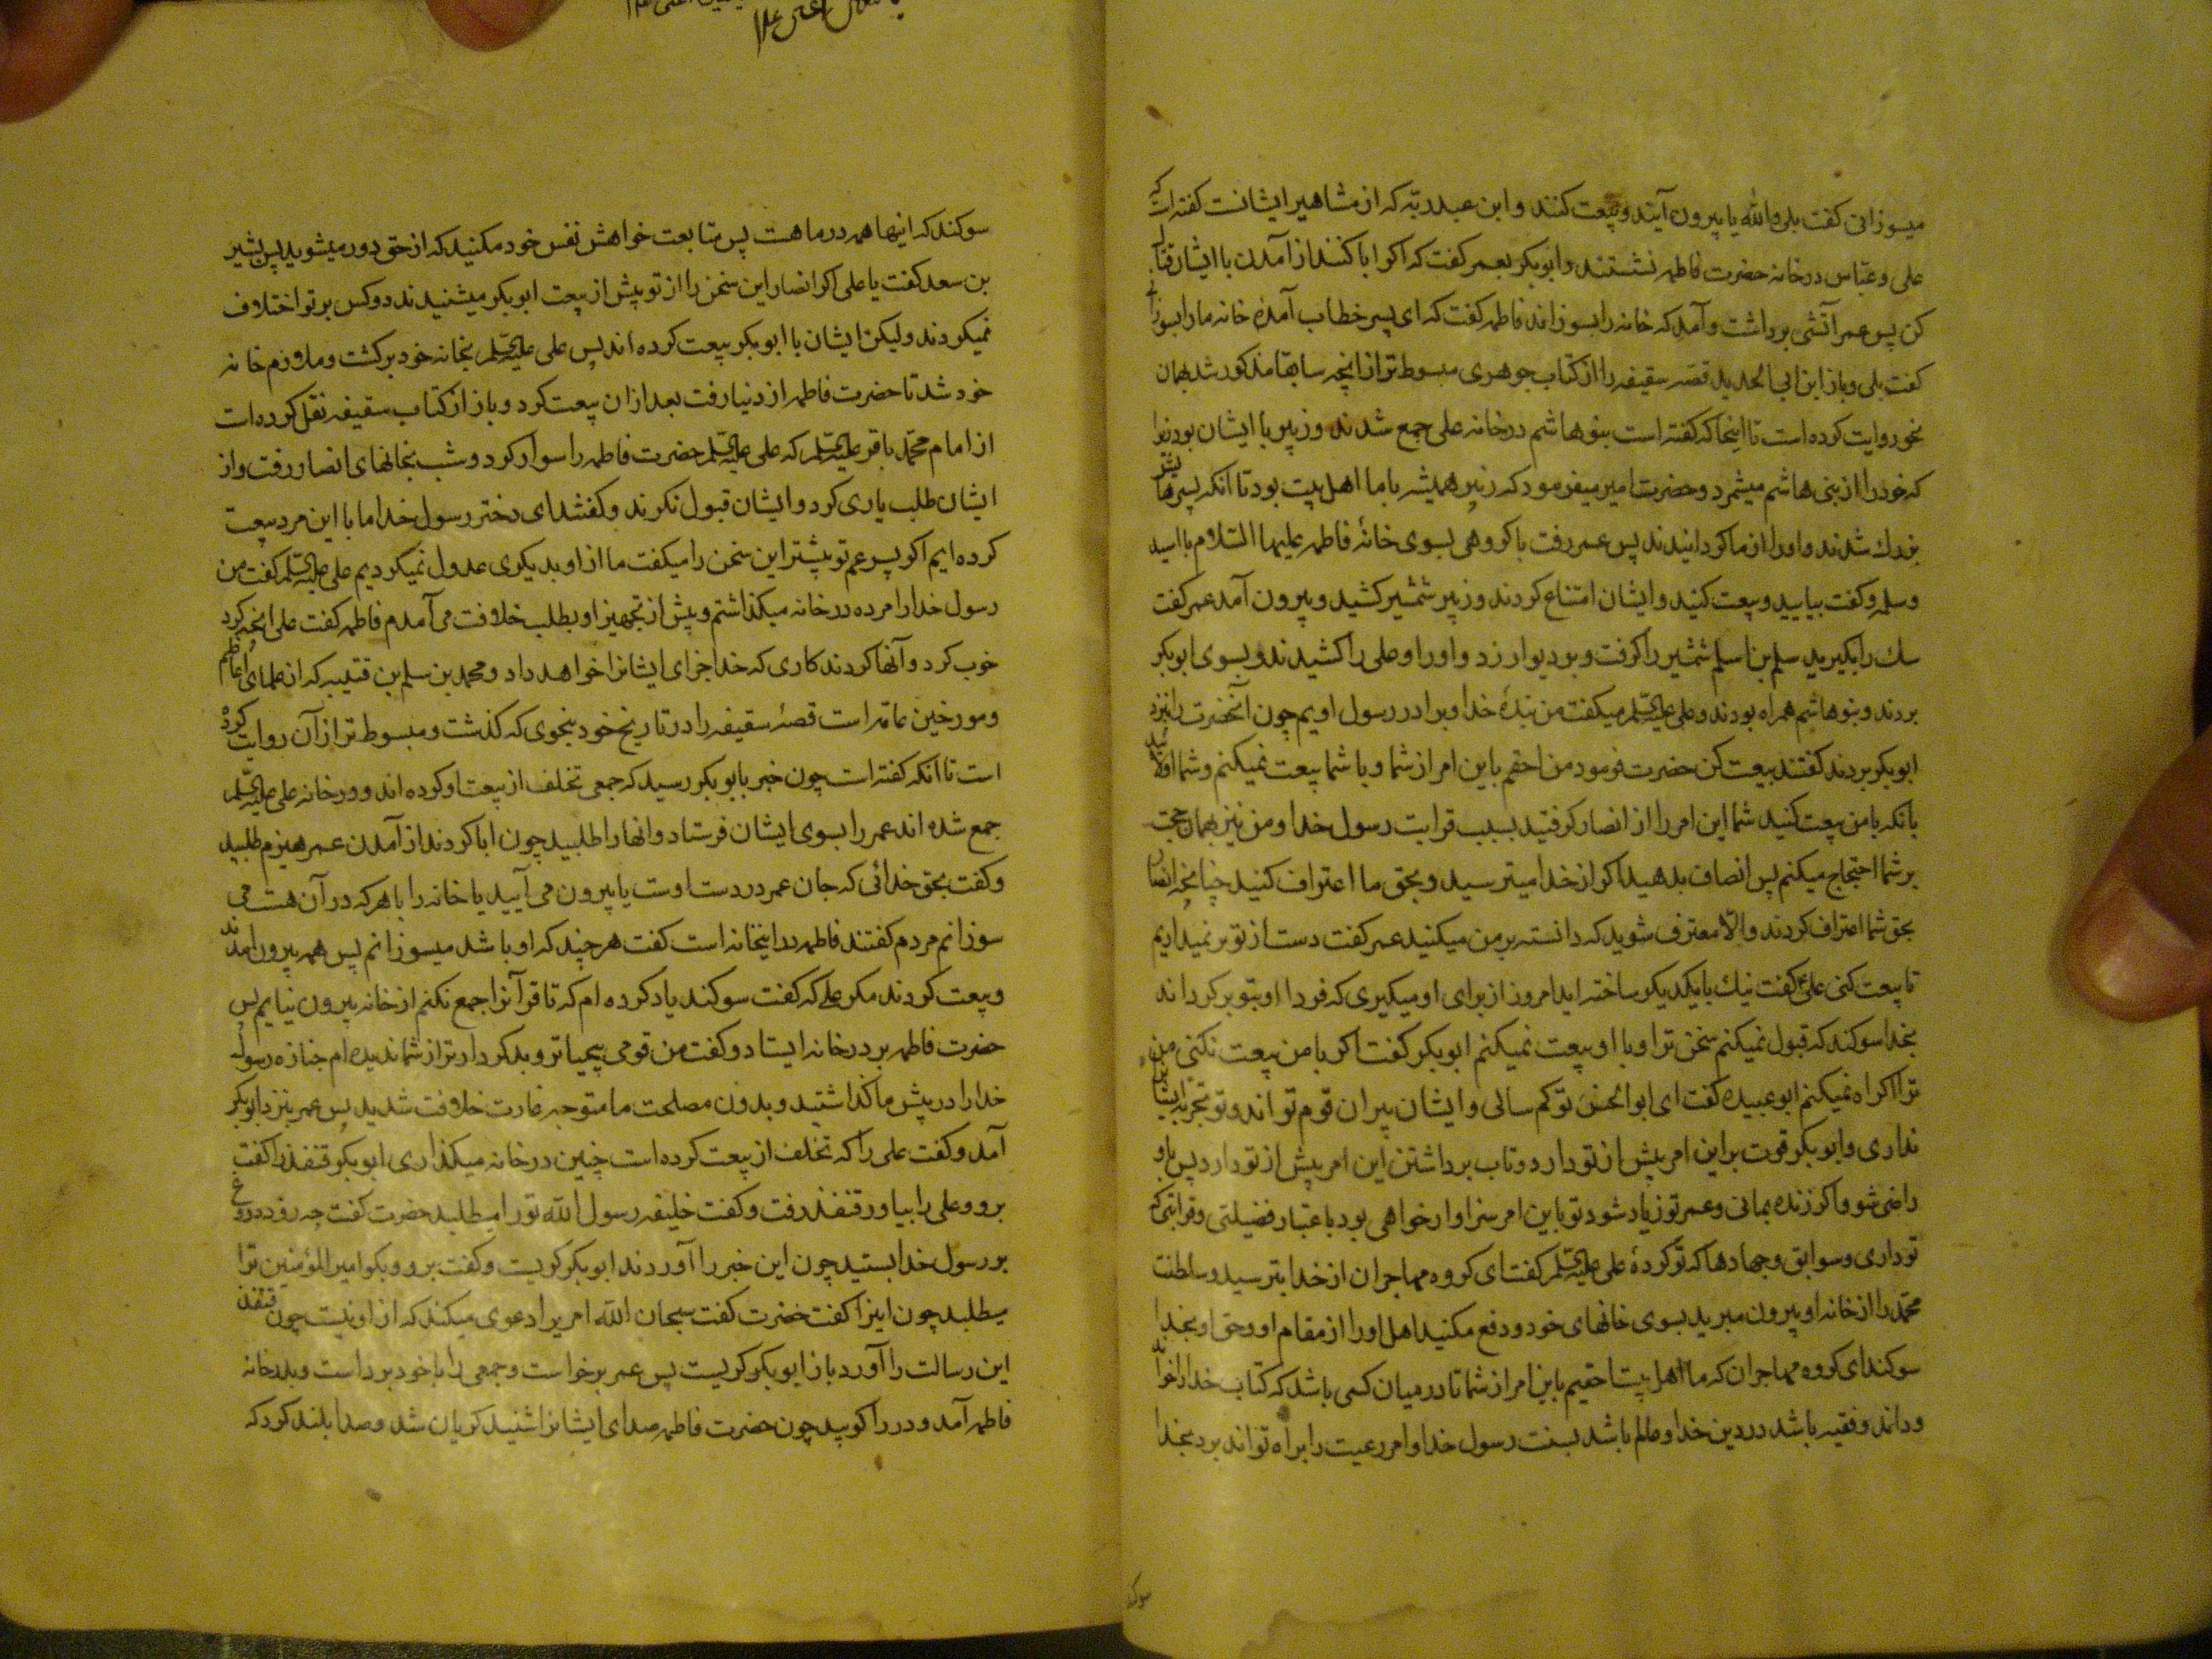 میسوزانی گفت بلی والله یا بیرون آیند و بیعت کنند و ابن عبد ربّه که از مشاهیر ایشانست گفته است که
علی و عباس در خانه حضرت فاطمه نشستند و ابوبکر بعمر گفت که اگر ابا کنند از آمدن با ایشان قتال
کن پس عمر آتشی برداشت و آمد که خانه را بسوزاند فاطمه گفت که ای پسر خطاب آمدۀ خانه ما را بسوزانی
گفت بلی و باز ابن ابی الحدید قصّه سقیفه را از کتاب جوهری مبسوط تر از آنچه سابقا مذکور شد بهمان
نحو روایت کرده است تا اینجا که گفته است بنو هاشم در خانه علی جمع شدند و زبیر با ایشان بود زیرا
که خود را از بنی هاشم میشمرد و حضرت امیر میفرمود که زبیر همیشه با ما اهل بیت بود تا آنکه پسرهایش
بزرك شدند و او را از ما گردانیدند پس عمر رفت با گروهی بسوی خانۀ فاطمه علیها السّلام با اسید
و سلمه و گفت بیایید و بیعت کنید و ایشان امتناع کردند و زبیر شمشیر کشید و بیرون آمد عمر گفت
سك را بگیرید سلمه بن اسلم شمشیر را گرفت و بر دیوار زد و او را و علی را کشیدند و بسوی ابوبکر
بردند و بنو هاشم همراه بودند و علی علیه السّلام میگفت من بندۀ خدا و برادر رسول اویم چون آنحضرت را نزد
ابوبکر بردند گفتند بیعت کن حضرت فرمود من احقم باین امر از شما و با شما بیعت نمیکنم و شما اولائید
بآنکه با من بیعت کنید شما این امر را از انصار گرفتید بسبب قرابت رسول خدا و من نیز بهمان حجت
بر شما احتجاج میکنم پس انصاف بدهید اگر از خدا میترسید و بحق ما اعتراف کنید چنانچه انصار
بحق شما اعتراف کردند و الّا معترف شوید که دانسته بر من میکنید عمر گفت دست از تو بر نمیداریم
تا بیعت کنی علی گفت نیك با یکدیگر ساخته اید امروز از برای او میگیری که فردا او بتو برگرداند
بخدا سوگند که قبول نمیکنم سخن ترا و با او بیعت نمیکنم ابوبکر گفت اگر با من بیعت نکنی من
ترا اکراه نمیکنم ابو عبیده گفت ای ابو الحسن تو کم سالی و ایشان پیران قوم تو اند و تو تجربۀ ایشان
نداری و ابوبکر قوت بر این امر بیش از تو دارد و تاب برداشتن این امر بیش از تو دارد پس باو
راضی شو و اگر زنده بمانی و عمر تو زیاد شود تو باین امر سزاوار خواهی بود باعتبار فضیلتی و قرابتی که
تو داری و سوابق و جهادها که تو کردۀ علی علیه السّلام گفت ای گروه مهاجران از خدا بترسید و سلطنت
محمّد را از خانه او بیرون مبرید بسوی خانهای خود و دفع مکنید اهل او را از مقام او و حق او بخدا
سوگند ای گروه مهاجران که ما اهل بیت احقیم باین امر از شما تا در میان کسی باشد که کتاب خدا را خواند
و داند و فقیه باشد در دین خدا و عالم باشد بسنت رسول خدا و امر رعیت را براه تواند برد بخدا
سوگند
سوگند که اینها همه در ما هست پس متابعت خواهش نفس خود مکنید که از حق دور میشوید پس بشیر
بن سعد گفت یا علی اگر انصار این سخن را از تو پیش از بیعت ابوبکر میشنیدند دو کس بر تو اختلاف
نمیکردند و لیکن ایشان با ابوبکر بیعت کرده اند پس علی علیه السّلم بخانه خود برگشت و ملازم خانه
خود شد تا حضرت فاطمه از دنیا رفت بعد از ان بیعت کرد و باز از کتاب سقیفه نقل کرده است
از امام محمّد باقر علیه السّلم که علی علیه السّلم حضرت فاطمه را سوار کرد و شب بخانهای انصار رفت و از
ایشان طلب یاری کرد و ایشان قبول نکردند و گفتند ای دختر رسول خدا ما با این مرد بیعت
کرده ایم اگر پسر عم تو پیشتر این سخن را میگفت ما از او بدیگری عدول نمیکردیم علی علیه السّلم گفت من
رسول خدا را مرده در خانه میگذاشتم و پیش از تجهیز او بطلب خلافت می آمدم فاطمه گفت علی آنچه کرد
خوب کرد و آنها کردند کاری که خدا جزای ایشانرا خواهد داد و محمد بن مسلم بن قتیبه که از علمای اعاظم
و مورخین عامّه است قصۀ سقیفه را در تاریخ خود بنحوی که گذشت و مبسوط تر از آن روایت کرده
است تا آنکه گفته است چون خبر بابوبکر رسید که جمعی تخلف از بیعت او کرده اند و در خانه علی علیه السّلم
جمع شده اند عمر را بسوی ایشان فرستاد و آنها را طلبید چون ابا کردند از آمدن عمر هیزم طلبید
و گفت بحق خدائی که جان عمر در دست اوست یا بیرون می آیید یا خانه را با هر که در آن هست می
سوزانم مردم گفتند فاطمه در اینخانه است گفت هر چند که او باشد میسوزانم پس همه بیرون آمدند
و بیعت کردند مگر علی که گفت سوگند یاد کرده ام که تا قرآنرا جمع نکنم از خانه بیرون نیایم پس
حضرت فاطمه بر در خانه ایستاد و گفت من قومی بیحیاتر و بدکردارتر از شما ندیده ام جنازه رسول
خدا را در پیش ما گذاشتید و بدون مصلحت ما متوجه غارت خلافت شدید پس عمر بنزد ابوبکر
آمد و گفت علی را که تخلف از بیعت کرده است چنین در خانه میگذاری ابوبکر قنفذ را گفت
برو و علی را بیاور قنفذ رفت و گفت خلیفه رسول الله تو را میطلبد حضرت گفت چه زود دروغ
بر رسول خدا بستید چون این خبر را آوردند ابوبکر گریست و گفت برو و بگو امیر المؤمنین ترا
میطلبد چون اینرا گفت حضرت گفت سبحان الله امریرا دعوی میکند که از او نیست چون قنفذ
این رسالت را آورد باز ابوبکر گریست پس عمر برخواست و جمعی را با خود برداشت و بدر خانه
فاطمه آمد و در را کوبید چون حضرت فاطمه صدای ایشانرا شنید گریان شد و صدا بلند کرد که